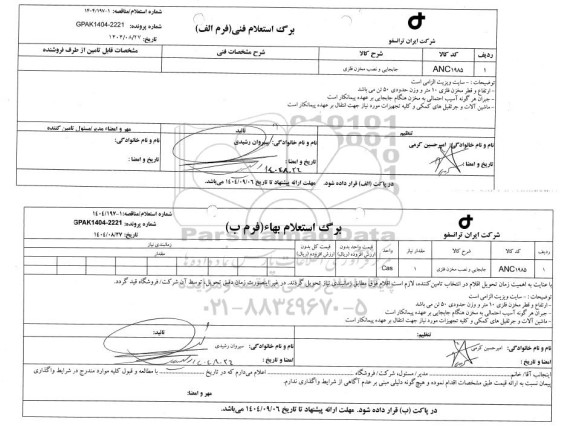 شماره استعلام/مناقصه: ۱۴۰۴/۱۹۷-۱
شماره پرونده: GPAK1404-2221
تاریخ: ۱۴۰۴/۰۸/۲۷
برگ استعلام فنی(فرم الف)
شرکت ایران ترانسفو
ردیف کد کالا شرح کالا شرح مشخصات فنی مشخصات قابل تامین از طرف فروشنده
۱ ANC۱۹۸۵ جابجایی و نصب مخزن فلزی
توضیحات: - سایت ویزیت الزامی است
- ارتفاع و قطر مخزن فلزی ۱۰ متر و وزن حدودی ۵۰ تن می باشد
- جبران هر گونه آسیب احتمالی به مخزن هنگام جابجایی بر عهده پیمانکار است
- ماشین آلات و جرثقیل های کمکی و کلیه تجهیزات مورد نیاز جهت انتقال بر عهده پیمانکار است
تنظیم تائید مهر و امضاء مدیر/مسئول تامین کننده
نام و نام خانوادگی: امیرحسین کرمی نام و نام خانوادگی: سیروان رشیدی نام و نام خانوادگی:
امضا و تاریخ: تاریخ و امضا: تاریخ و امضا:
در پاکت (الف) قرار داده شود. مهلت ارائه پیشنهاد تا تاریخ ۱۴۰۴/۰۹/۰۶ می‌باشد.
ParsNamadData
۰۲۱-۸۸۳۴۹۶۷۰-۵
شماره استعلام/مناقصه: ۱۴۰۴/۱۹۷-۱
شماره پرونده: GPAK1404-2221
تاریخ: ۱۴۰۴/۰۸/۲۷
برگ استعلام بهاء(فرم ب)
شرکت ایران ترانسفو
ردیف کد کالا شرح کالا مقدار نیاز واحد قیمت واحد بدون ارزش افزوده (ریال) قیمت کل بدون ارزش افزوده (ریال) زمانبندی نیاز
تاریخ مقدار
۱ ANC۱۹۸۵ جابجایی و نصب مخزن فلزی ۱ Cas
با عنایت به اهمیت زمان تحویل اقلام در انتخاب تامین کننده، لازم است اقلام فوق مطابق زمانبندی نیاز تحویل گردند. در غیر اینصورت زمان دقیق تحویل، توسط آن شرکت/فروشگاه قید گردد.
توضیحات: - سایت ویزیت الزامی است
- ارتفاع و قطر مخزن فلزی ۱۰ متر و وزن حدودی ۵۰ تن می باشد
- جبران هر گونه آسیب احتمالی به مخزن هنگام جابجایی بر عهده پیمانکار است
- ماشین آلات و جرثقیل های کمکی و کلیه تجهیزات مورد نیاز جهت انتقال بر عهده پیمانکار است
تنظیم: تائید:
نام و نام خانوادگی: امیرحسین کرمی نام و نام خانوادگی: سیروان رشیدی
امضا و تاریخ: تاریخ و امضا:
اینجانب آقا/ خانم ........ مدیر/ مسئول، شرکت/ فروشگاه ........ اعلام می‌دارم که در تاریخ ........ با مطالعه و قبول کلیه موارد مندرج در شرایط واگذاری
پیمان نسبت به ارائه قیمت طبق مشخصات اقدام نموده و هیچ‌گونه دلیلی مبنی بر عدم آگاهی از شرایط واگذاری ندارم.
مهر و امضا:
در پاکت (ب) قرار داده شود. مهلت ارائه پیشنهاد تا تاریخ ۱۴۰۴/۰۹/۰۶ می‌باشد.